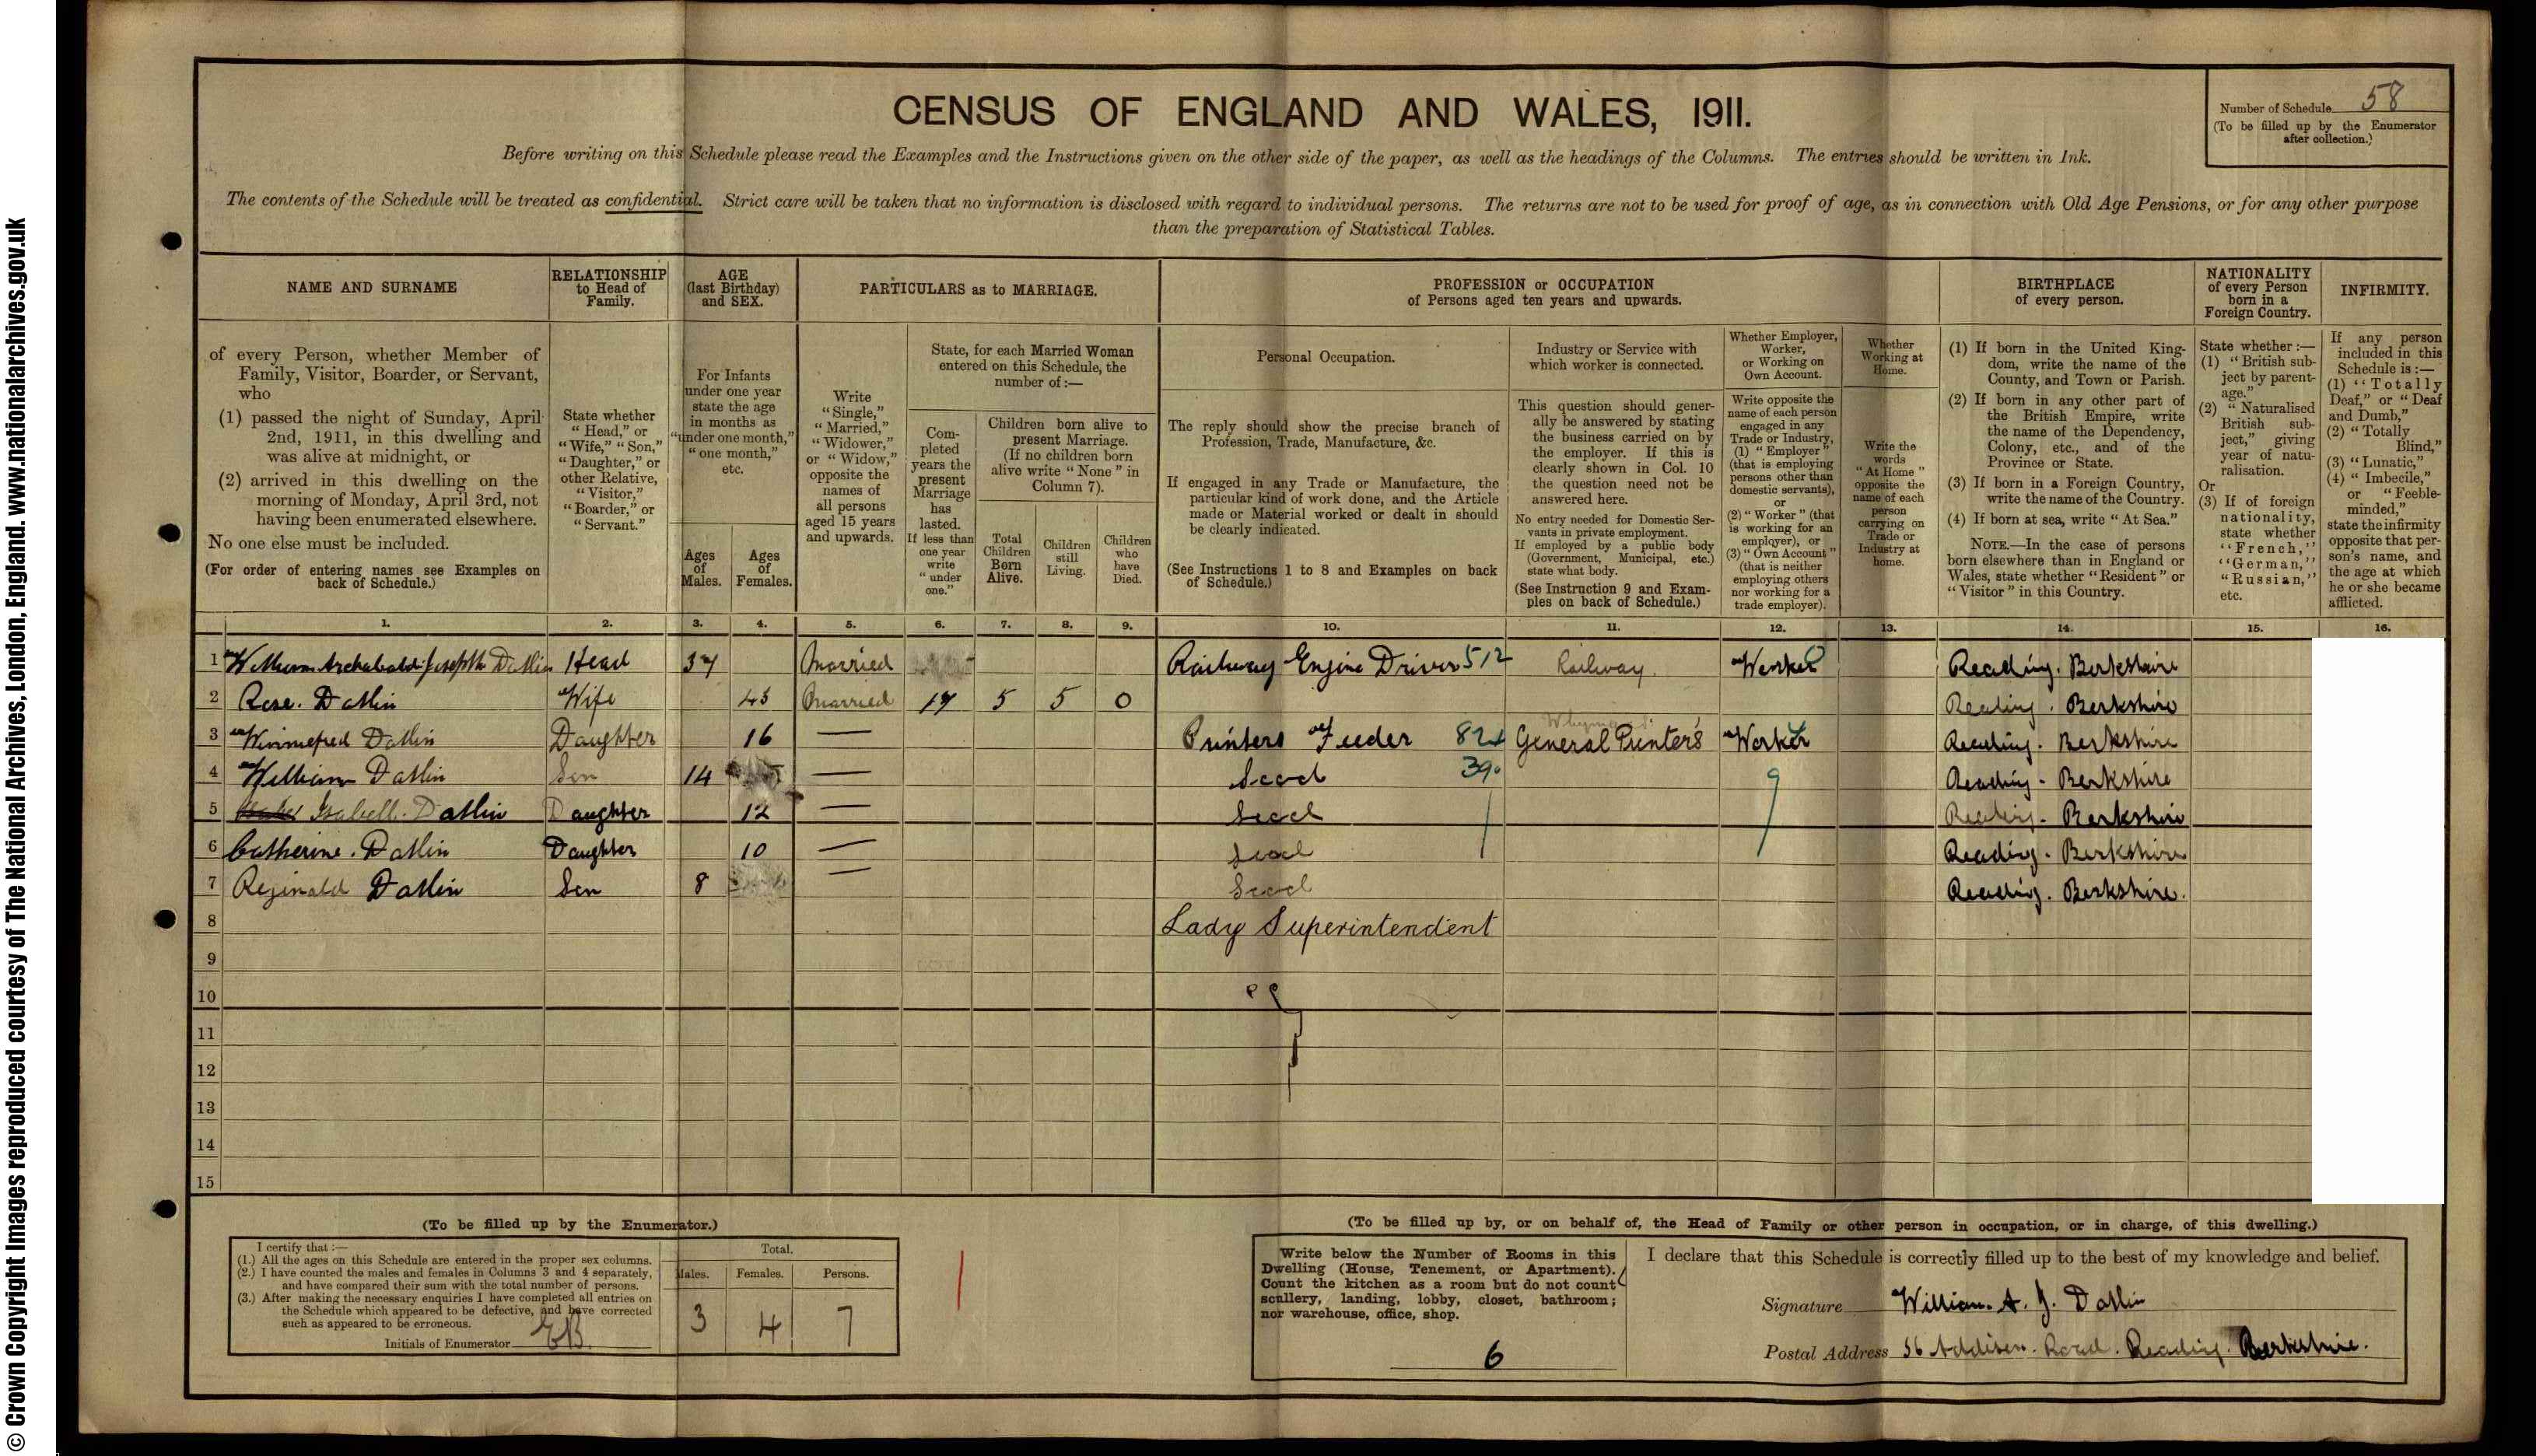 © Crown Copyright Images reproduced courtesy of The National Archives, London, England. www.nationalarchives.gov.uk
CENSUS OF ENGLAND AND WALES, 1911.
Number of Schedule 58
(To be filled up by the Enumerator
after collection.)
Before writing on this Schedule please read the Examples and the Instructions given on the other side of the paper, as well as the headings of the Columns. The entries should be written in Ink.
The contents of the Schedule will be treated as confidential. Strict care will be taken that no information is disclosed with regard to individual persons. The returns are not to be used for proof of age, as in connection with Old Age Pensions, or for any other purpose
than the preparation of Statistical Tables.
NAME AND SURNAME
of every Person, whether Member of
Family, Visitor, Boarder, or Servant,
who
(1) passed the night of Sunday, April
2nd, 1911, in this dwelling and
was alive at midnight, or
(2) arrived in this dwelling on the
morning of Monday, April 3rd, not
having been enumerated elsewhere.
No one else must be included.
(For order of entering names see Examples on
back of Schedule.)
RELATIONSHIP
to Head of
Family.
State whether
"Head," or
"Wife," "Son,"
"Daughter," or
other Relative,
"Visitor,"
"Boarder," or
"Servant."
AGE
(last Birthday)
and SEX.
For Infants
under one year
state the age
in months as
"under one month,"
"one month,"
etc.
Ages
of
Males.
Ages
of
Females.
PARTICULARS as to MARRIAGE.
Write
"Single,"
"Married,"
"Widower,"
or "Widow,"
opposite the
names of
all persons
aged 15 years
and upwards.
State, for each Married Woman
entered on this Schedule, the
number of:—
Com-
pleted
years the
present
Marriage
has
lasted.
If less than
one year
write
"under
one."
Children born alive to
present Marriage.
(If no children born
alive write "None" in
Column 7).
Total
Children
Born
Alive.
Children
still
Living.
Children
who
have
Died.
PROFESSION or OCCUPATION
of Persons aged ten years and upwards.
Personal Occupation.
The reply should show the precise branch of
Profession, Trade, Manufacture, &c.
If engaged in any Trade or Manufacture, the
particular kind of work done, and the Article
made or Material worked or dealt in should
be clearly indicated.
(See Instructions 1 to 8 and Examples on back
of Schedule.)
Industry or Service with
which worker is connected.
This question should gener-
ally be answered by stating
the business carried on by
the employer. If this is
clearly shown in Col. 10
the question need not be
answered here.
No entry needed for Domestic Ser-
vants in private employment.
If employed by a public body
(Government, Municipal, etc.)
state what body.
(See Instruction 9 and Exam-
ples on back of Schedule.)
Whether Employer,
Worker,
or Working on
Own Account.
Write opposite the
name of each person
engaged in any
Trade or Industry,
(1) "Employer"
(that is employing
persons other than
domestic servants),
or
(2) "Worker" (that
is working for an
employer), or
(3) "Own Account"
(that is neither
employing others
nor working for a
trade employer).
Whether
Working at
Home.
Write the
words
"At Home"
opposite the
name of each
person
carrying on
Trade or
Industry at
home.
BIRTHPLACE
of every person.
(1) If born in the United King-
dom, write the name of the
County, and Town or Parish.
(2) If born in any other part of
the British Empire, write
the name of the Dependency,
Colony, etc., and of the
Province or State.
(3) If born in a Foreign Country,
write the name of the Country.
(4) If born at sea, write "At Sea."
NOTE.—In the case of persons
born elsewhere than in England or
Wales, state whether "Resident" or
"Visitor" in this Country.
NATIONALITY
of every Person
born in a
Foreign Country.
State whether:—
(1) "British sub-
ject by parent-
age."
(2) "Naturalised
British sub-
ject," giving
year of natu-
ralisation.
Or
(3) If of foreign
nationality,
state whether
"French,"
"German,"
"Russian,"
etc.
INFIRMITY.
If any person
included in this
Schedule is:—
(1) "Totally
Deaf," or "Deaf
and Dumb,"
(2) "Totally
Blind,"
(3) "Lunatic,"
(4) "Imbecile,"
or "Feeble-
minded,"
state the infirmity
opposite that per-
son's name, and
the age at which
he or she became
afflicted.
1. 2. 3. 4. 5. 6. 7. 8. 9. 10. 11. 12. 13. 14. 15. 16.
1 William Archabald Joseph Datlin Head 37 Married Railway Engine Driver 512 Railway. Worker Reading. Berkshire
2 Rose. Datlin Wife 45 Married 17 5 5 0 Reading. Berkshire
3 Winniefred Datlin Daughter 16 — Printers Feeder General Printer's Worker Reading. Berkshire
4 William Datlin Son 14 — Scool 390 9 Reading - Berkshire
5 Isabell. Datlin Daughter 12 — Scool Reading - Berkshire
6 Catherine. Datlin Daughter 10 — Scool Reading - Berkshire
7 Reginald Datlin Son 8 — Scool Reading. Berkshire.
8 Lady Superintendent
9
10
11
12
13
14
15
(To be filled up by the Enumerator.)
I certify that:—
(1.) All the ages on this Schedule are entered in the proper sex columns.
(2.) I have counted the males and females in Columns 3 and 4 separately,
and have compared their sum with the total number of persons.
(3.) After making the necessary enquiries I have completed all entries on
the Schedule which appeared to be defective, and have corrected
such as appeared to be erroneous.
Initials of Enumerator EB.
Total.
Males. Females. Persons.
3 4 7
(To be filled up by, or on behalf of, the Head of Family or other person in occupation, or in charge, of this dwelling.)
Write below the Number of Rooms in this
Dwelling (House, Tenement, or Apartment).
Count the kitchen as a room but do not count
scullery, landing, lobby, closet, bathroom;
nor warehouse, office, shop.
6
I declare that this Schedule is correctly filled up to the best of my knowledge and belief.
Signature William. A. J. Datlin
Postal Address 56 Addison. Road. Reading. Berkshire.